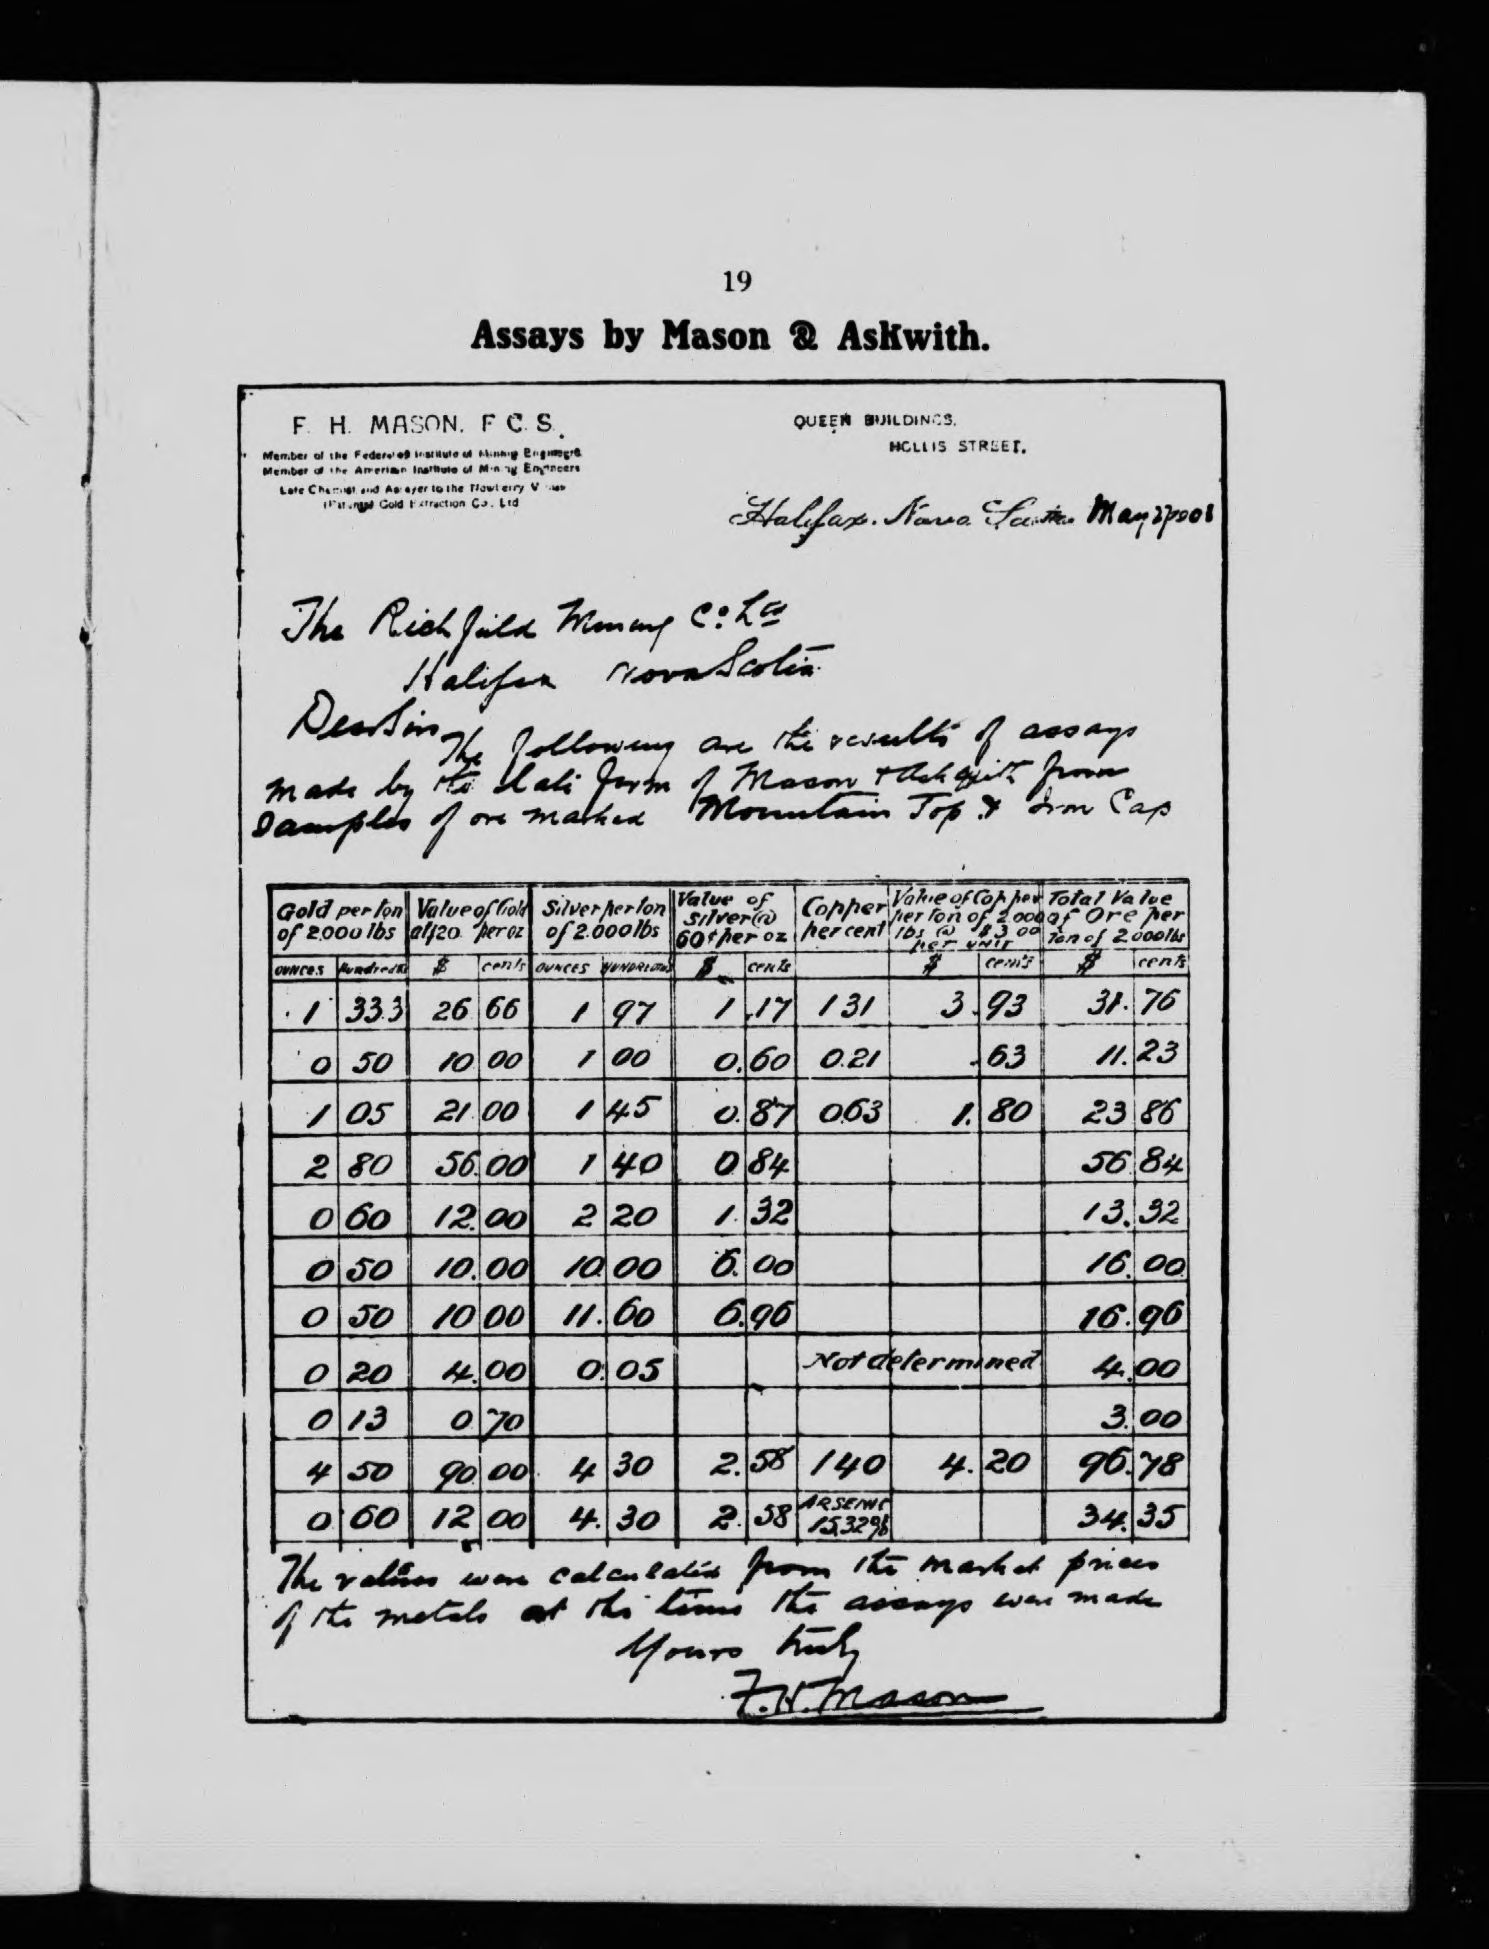 19
Assays by Mason & Askwith.
F. H. MASON. F. C. S.
QUEEN BUILDINGS.
Member of the Federated Institute of Mining Engineers
HOLLIS STREET.
Member of the American Institute of Mining Engineers
Late Chemist and Assayer to the Newberry
Gold Extraction Co. Ltd
Halifax. Nova Scotia May
The Richfield Mining Co. Ltd
Halifax Nova Scotia
Dear Sirs
The following are the results of assays
made by the late firm of Mason & Askwith from
Samples of ore marked Mountain Top & Iron Cap
Gold per ton of 2.000 lbs | Value of Gold at $20 per oz | Silver per ton of 2.000 lbs | Value of Silver @ 60¢ per oz | Copper per cent | Value of Copper per Ton of 2.000 lbs @ $3.00 per unit | Total Value of Ore per Ton of 2.000 lbs
OUNCES | Hundredths | $ | cents | OUNCES | HUNDREDTHS | $ | cents | $ | cents | $ | cents
1 | 33.3 | 26 | 66 | 1 | 97 | 1 | .17 | 131 | 3. | 93 | 31. | 76
0 | 50 | 10 | 00 | 1 | 00 | 0. | 60 | 0.21 | . | 63 | 11. | 23
1 | 05 | 21. | 00 | 1 | 45 | 0. | 87 | 063 | 1. | 80 | 23 | 86
2 | 80 | 56. | 00 | 1 | 40 | 0 | 84 | 56 | 84
0 | 60 | 12. | 00 | 2 | 20 | 1. | 32 | 13. | 32
0 | 50 | 10. | 00 | 10. | 00 | 6. | 00 | 16. | 00
0 | 50 | 10 | 00 | 11. | 60 | 6. | 96 | 16. | 96
0 | 20 | 4. | 00 | 0. | 05 | Not determined | 4. | 00
0 | 13 | 0 | 70 | 3. | 00
4 | 50 | 90. | 00 | 4 | 30 | 2. | 58 | 140 | 4. | 20 | 96. | 78
0 | 60 | 12 | 00 | 4. | 30 | 2. | 58 | ARSENIC 15.32% | 34. | 35
The values were calculated from the market prices
of the metals at the time the assays were made
Yours truly
F. H. Mason